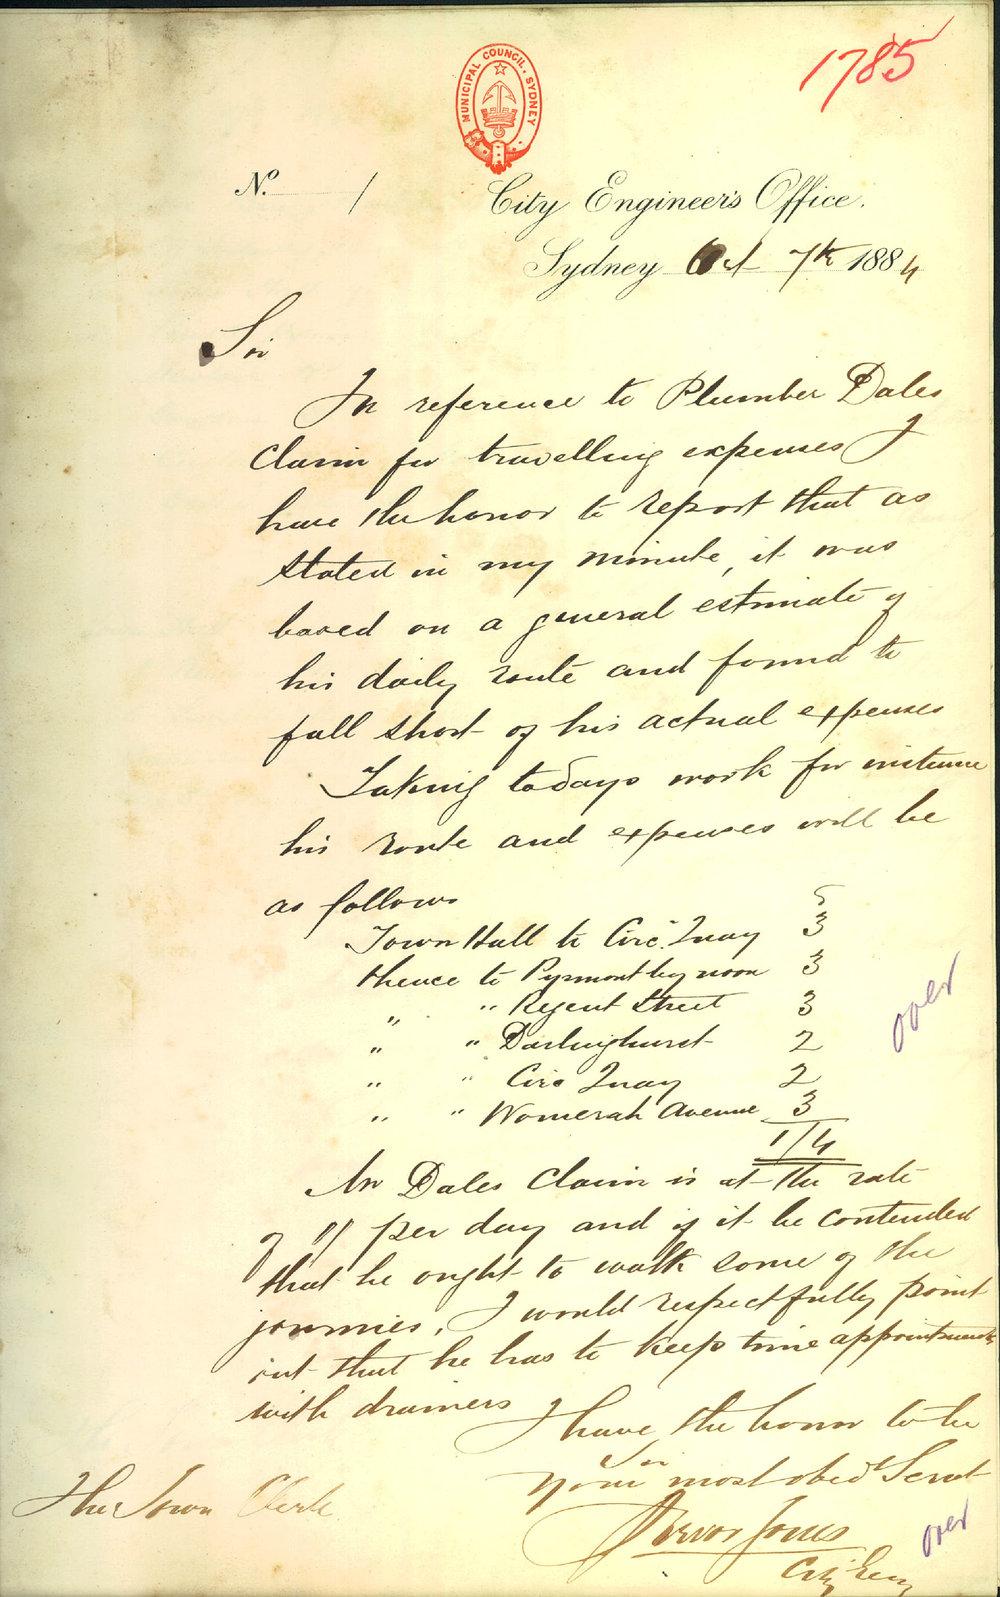 1785
MUNICIPAL COUNCIL. SYDNEY
No. /
City Engineer's Office.
Sydney Oct 7th 1884
Sir
In reference to Plumber Dales
Claim for travelling expenses I
have the honor to report that as
stated in my minute, it was
based on a general estimate of
his daily route and found to
fall short of his actual expenses
Taking todays work for instance
his route and expenses will be
as follows
Town Hall to Circ. Quay 3
thence to Pyrmont by noon 3
" " Regent Street 3
" " Darlinghurst 2
" " Circ Quay 2
" " Womerah Avenue 3
1/4
Mr Dales Claim is at the rate
of 1/ per day and if it be contended
that he ought to walk some of the
journies, I would respectfully point
out that he has to keep time appointments
with drainers
I have the honor to be
Sir
Your most obedt Servt
Trevor Jones
City Eng
The Town Clerk
over
over